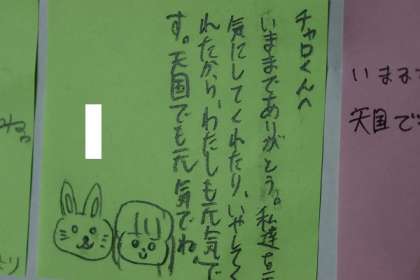 チャロくんへ
いままでありがとう。私達を元
気にしてくれたり、いやしてく
れたから、わたしも元気で
す。天国でも元気でね。
いままで
天国で
ね。
より